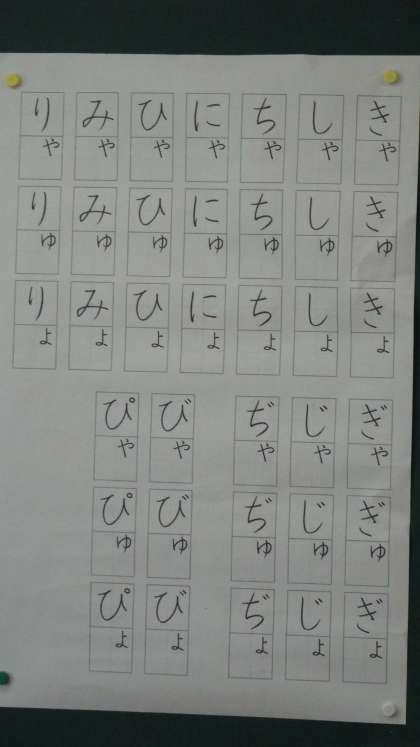 きゃ きゅ きょ
しゃ しゅ しょ
ちゃ ちゅ ちょ
にゃ にゅ にょ
ひゃ ひゅ ひょ
みゃ みゅ みょ
りゃ りゅ りょ
ぎゃ ぎゅ ぎょ
じゃ じゅ じょ
ぢゃ ぢゅ ぢょ
びゃ びゅ びょ
ぴゃ ぴゅ ぴょ